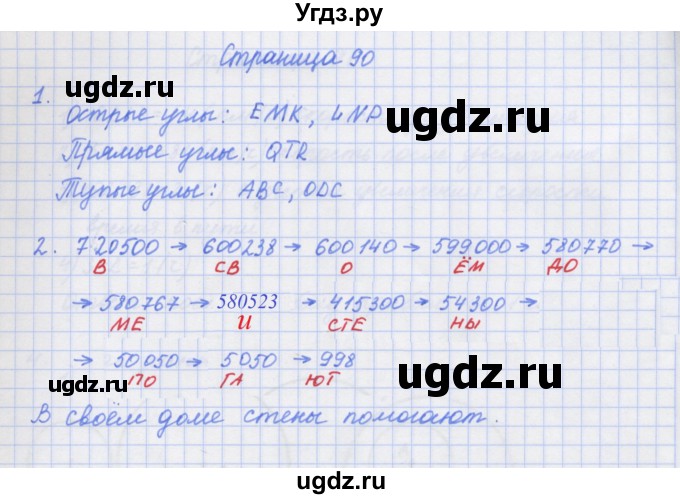 Угдз.ру
Страница 90
1.
Острые углы: EMK, LNP
Прямые углы: QTR
Тупые углы: ABC, ODC
2. 720500 → 600238 → 600140 → 599000 → 580770 →
В СВ О ЁМ ДО
→ 580767 → 580523 → 415300 → 54300 →
МЕ И СТЕ НЫ
→ 50050 → 5050 → 998
ПО ГА ЮТ
В своём доме стены помогают.
ugdz.ru
ugdz.ru
ugdz.ru
ugdz.ru
ugdz.ru
ugdz.ru
ugdz.ru
ugdz.ru
ugdz.ru